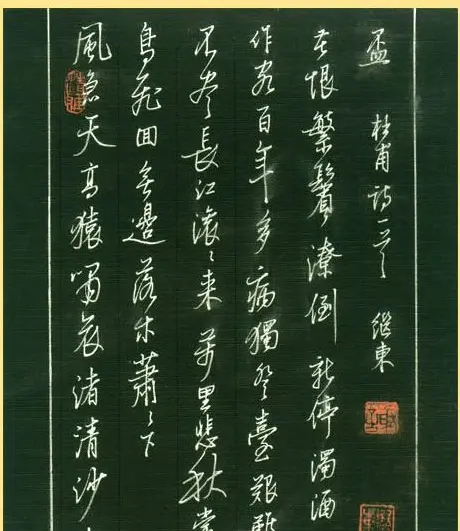 風急天高猿嘯哀渚清沙
鳥飛回無邊落木蕭々下
不盡長江滚々来萬里悲秋常
作客百年多病獨登臺艱難
苦恨繁鬢潦倒新停濁酒
盃 杜甫詩一首 繼東